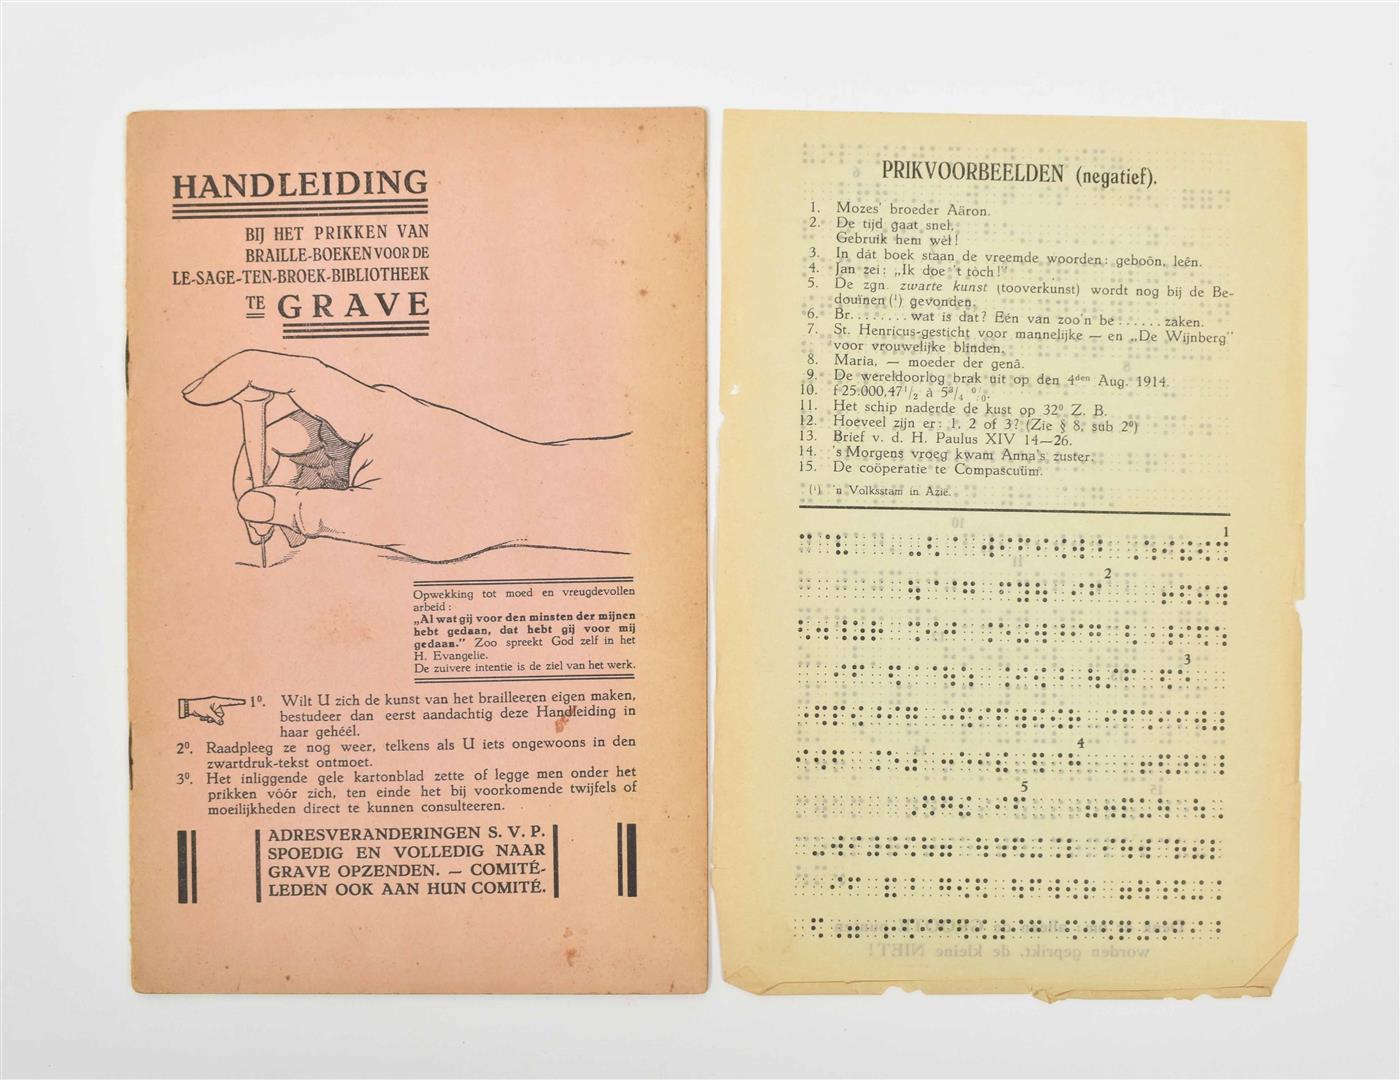 HANDLEIDING
BIJ HET PRIKKEN VAN
BRAILLE-BOEKEN VOOR DE
LE-SAGE-TEN-BROEK-BIBLIOTHEEK
TE GRAVE
Opwekking tot moed en vreugdevollen
arbeid:
„Al wat gij voor den minsten der mijnen
hebt gedaan, dat hebt gij voor mij
gedaan.” Zoo spreekt God zelf in het
H. Evangelie.
De zuivere intentie is de ziel van het werk.
1⁰. Wilt U zich de kunst van het brailleeren eigen maken,
bestudeer dan eerst aandachtig deze Handleiding in
haar gehéél.
2⁰. Raadpleeg ze nog weer, telkens als U iets ongewoons in den
zwartdruk-tekst ontmoet.
3⁰. Het inliggende gele kartonblad zette of legge men onder het
prikken vóór zich, ten einde het bij voorkomende twijfels of
moeilijkheden direct te kunnen consulteeren.
ADRESVERANDERINGEN S. V. P.
SPOEDIG EN VOLLEDIG NAAR
GRAVE OPZENDEN. — COMITÉ-
LEDEN OOK AAN HUN COMITÉ.
PRIKVOORBEELDEN (negatief).
1. Mozes' broeder Aäron.
2. De tijd gaat snel.
Gebruik hem wèl!
3. In dát boek staan de vreemde woorden: geboôn, leên.
4. Jan zei: „Ik doe 't tòch!”
5. De zgn. zwarte kunst (tooverkunst) wordt nog bij de Be-
douïnen (¹) gevonden.
6. Br........ wat is dat? Eén van zoo'n be...... zaken.
7. St. Henricus-gesticht voor mannelijke — en „De Wijnberg”
voor vrouwelijke blinden.
8. Maria, — moeder der genâ.
9. De wereldoorlog brak uit op den 4den Aug. 1914.
10. f 25.000,47¹/₂ à 5³/₄ %.
11. Het schip naderde de kust op 32⁰ Z. B.
12. Hoeveel zijn er: 1, 2 of 3? (Zie § 8, sub 2⁰)
13. Brief v. d. H. Paulus XIV 14—26.
14. 's Morgens vroeg kwam Anna's zuster.
15. De coöperatie te Compascuüm.
(¹) 'n Volksstam in Azië.
1
2
3
4
5
worden geprikt, de kleine NIET!